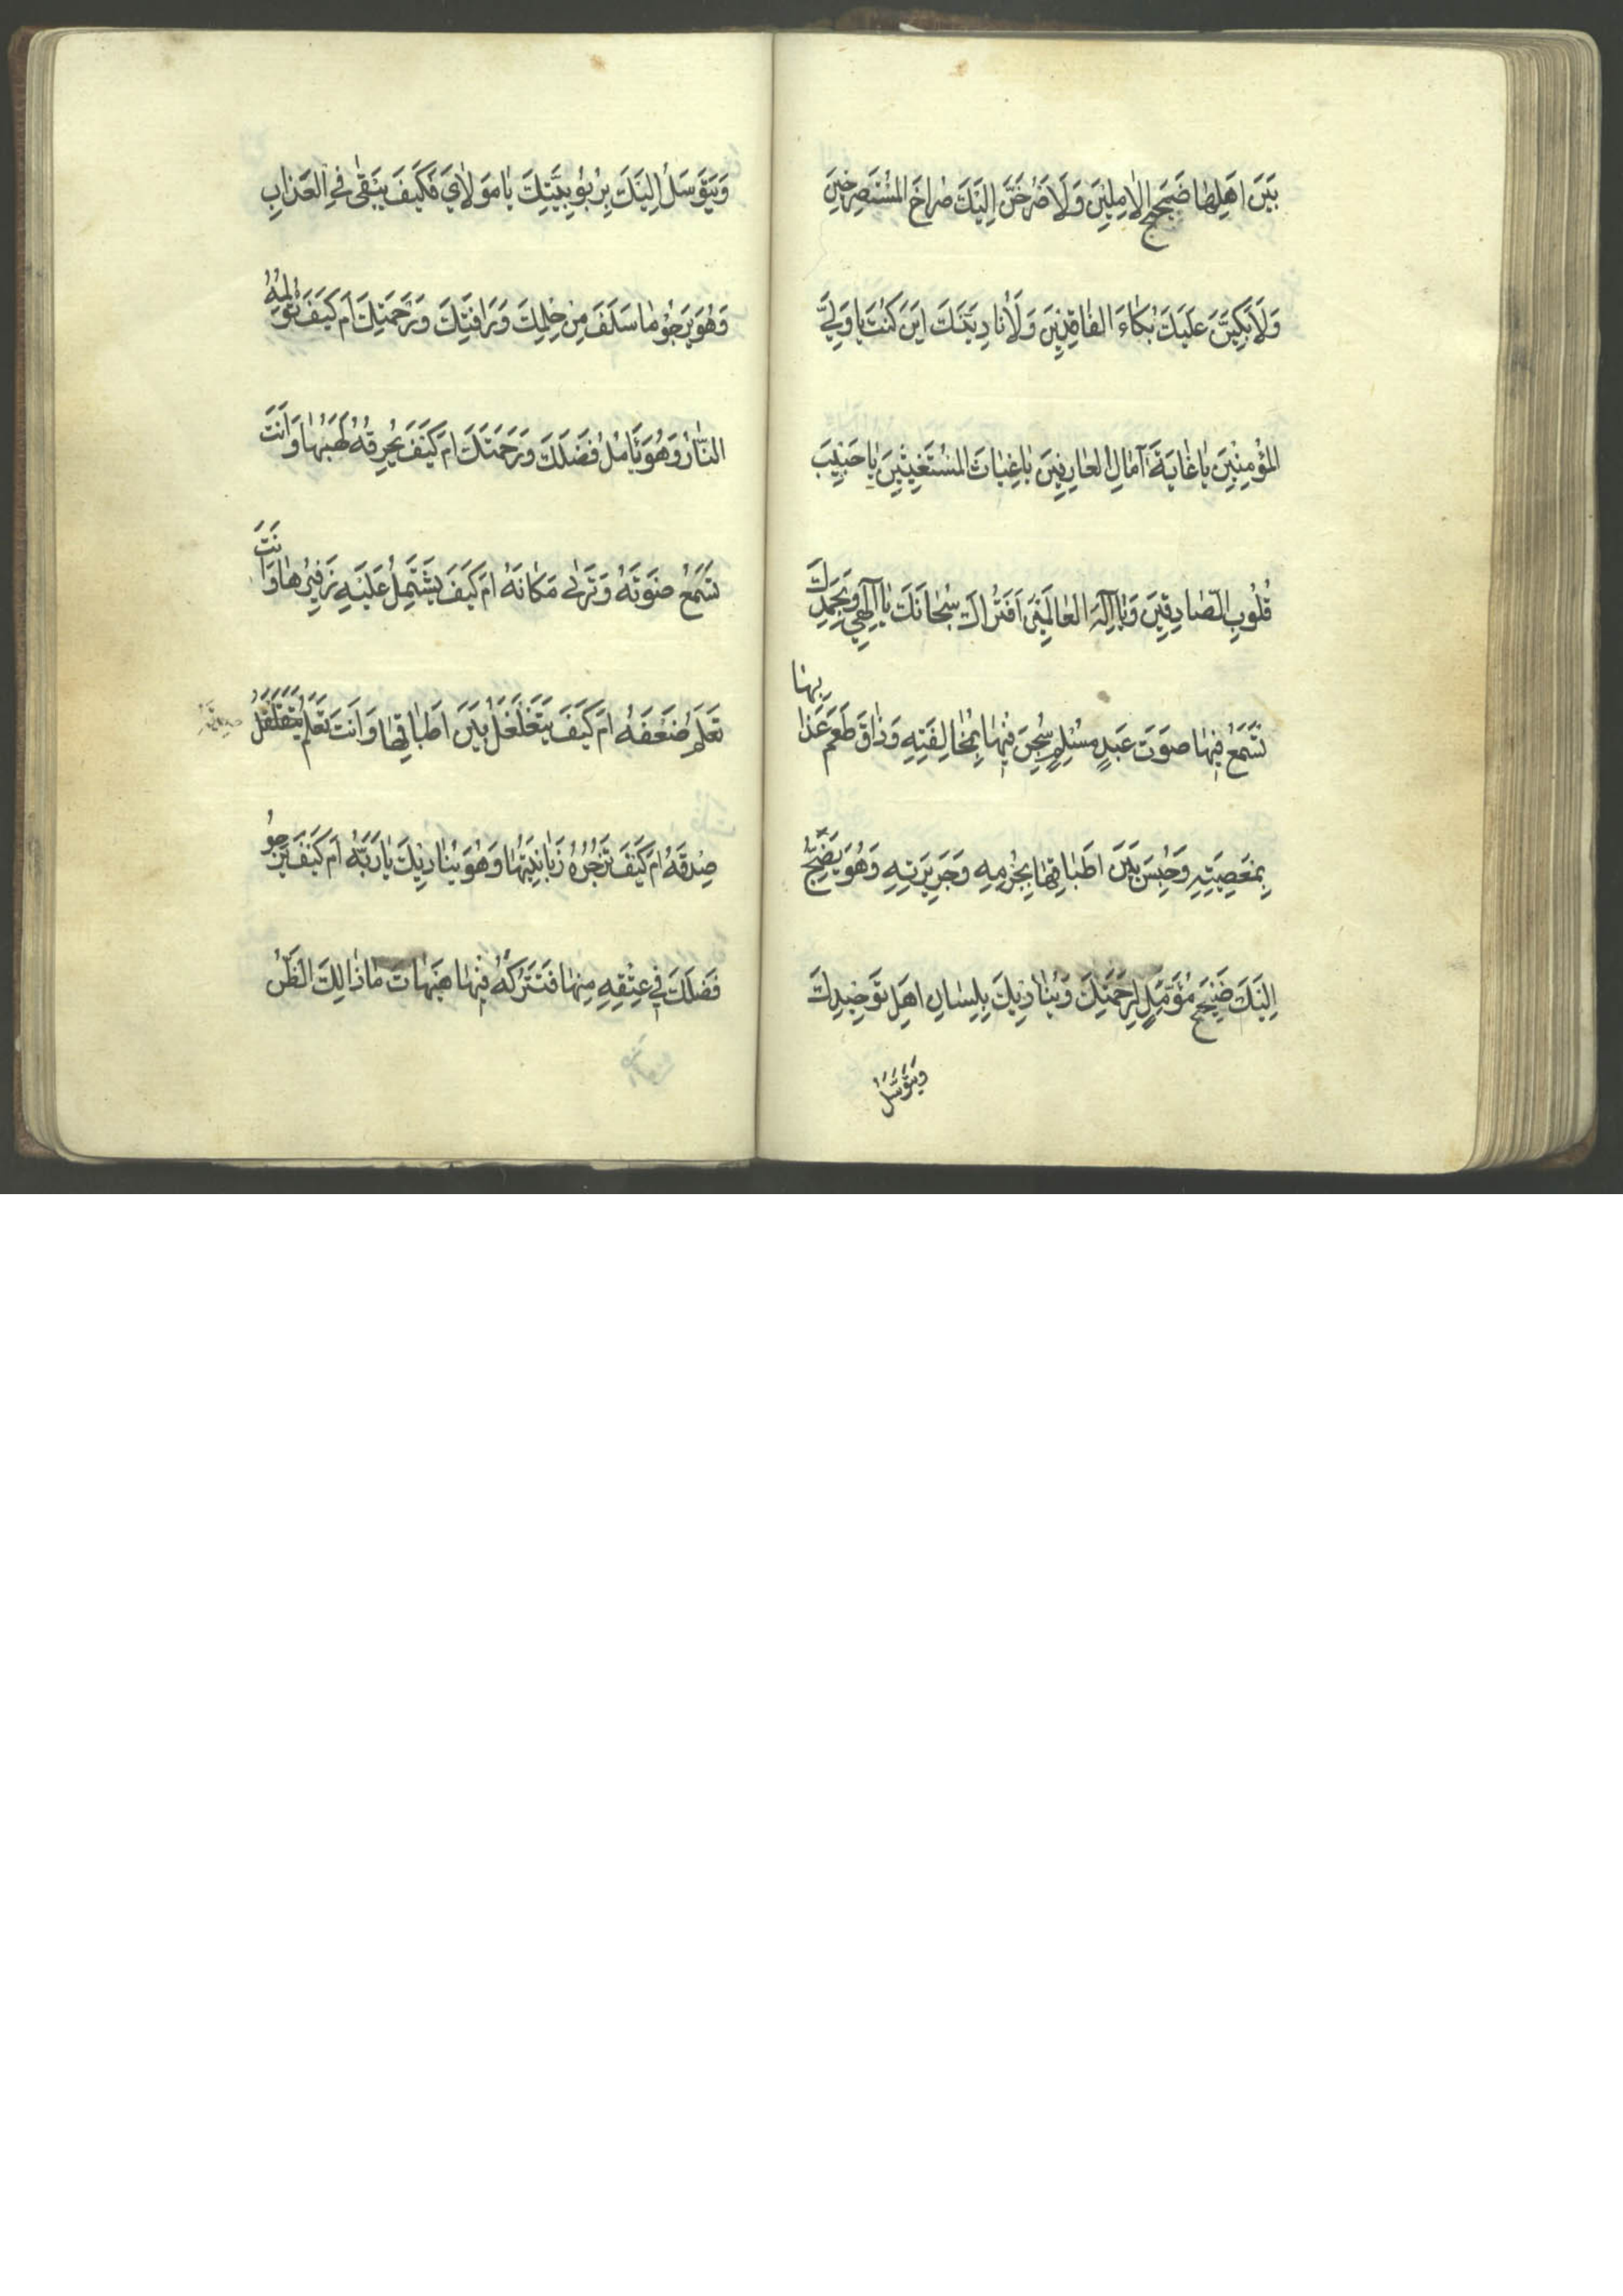 بَيْنَ اَهْلِهَا ضَجِيجَ الْاٰمِلِينَ وَلَاَصْرُخَنَّ اِلَيْكَ صُرَاخَ الْمُسْتَصْرِخِينَ
وَلَاَبْكِيَنَّ عَلَيْكَ بُكَاءَ الْفَاقِدِينَ وَلَاُنَادِيَنَّكَ اَيْنَ كُنْتَ يَا وَلِيَّ
الْمُؤْمِنِينَ يَا غَايَةَ آمَالِ الْعَارِفِينَ يَا غِيَاثَ الْمُسْتَغِيثِينَ يَا حَبِيبَ
قُلُوبِ الصَّادِقِينَ وَيَا اِلٰهَ الْعَالَمِينَ اَفَتُرَاكَ سُبْحَانَكَ يَا اِلٰهِي وَبِحَمْدِكَ
تَسْمَعُ فِيهَا صَوْتَ عَبْدٍ مُسْلِمٍ سُجِنَ فِيهَا بِمُخَالِفَتِهِ وَذَاقَ طَعْمَ عَذَابِهَا
بِمَعْصِيَتِهِ وَحُبِسَ بَيْنَ اَطْبَاقِهَا بِجُرْمِهِ وَجَرِيرَتِهِ وَهُوَ يَضِجُّ
اِلَيْكَ ضَجِيجَ مُؤَمِّلٍ لِرَحْمَتِكَ وَيُنَادِيكَ بِلِسَانِ اَهْلِ تَوْحِيدِكَ
وَيَتَوَسَّلُ
وَيَتَوَسَّلُ اِلَيْكَ بِرُبُوبِيَّتِكَ يَا مَوْلَايَ فَكَيْفَ يَبْقَى فِي الْعَذَابِ
وَهُوَ يَرْجُو مَا سَلَفَ مِنْ حِلْمِكَ وَرَافَتِكَ وَرَحْمَتِكَ اَمْ كَيْفَ تُؤْلِمُهُ
النَّارُ وَهُوَ يَاْمُلُ فَضْلَكَ وَرَحْمَتَكَ اَمْ كَيْفَ يُحْرِقُهُ لَهَبُهَا وَاَنْتَ
تَسْمَعُ صَوْتَهُ وَتَرَى مَكَانَهُ اَمْ كَيْفَ يَشْتَمِلُ عَلَيْهِ زَفِيرُهَا وَاَنْتَ
تَعْلَمُ ضَعْفَهُ اَمْ كَيْفَ يَتَغَلْغَلُ بَيْنَ اَطْبَاقِهَا وَاَنْتَ تَعْلَمُ
صِدْقَهُ اَمْ كَيْفَ تَزْجُرُهُ زَبَانِيَتُهَا وَهُوَ يُنَادِيكَ يَا رَبَّهُ اَمْ كَيْفَ يَرْجُو
فَضْلَكَ فِي عِتْقِهِ مِنْهَا فَتَتْرُكُهُ فِيهَا هَيْهَاتَ مَا ذَالِكَ الظَّنُّ